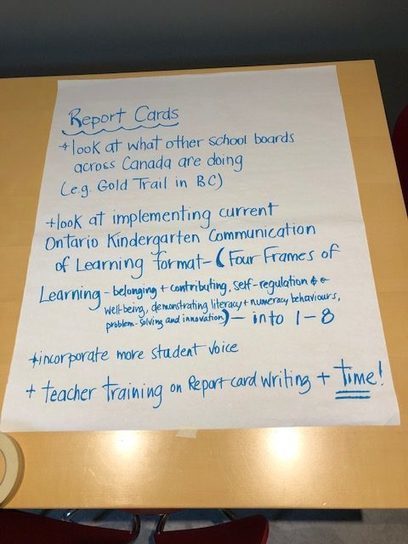 Report Cards
+look at what other school boards
across Canada are doing
(e.g. Gold Trail in BC)
+look at implementing current
Ontario Kindergarten Communication
of Learning format-(Four Frames of
Learning - belonging + contributing, self-regulation +
well-being, demonstrating literacy + numeracy behaviours,
problem-solving and innovation) - into 1-8
+incorporate more student voice
+ teacher training on Report card writing + time!